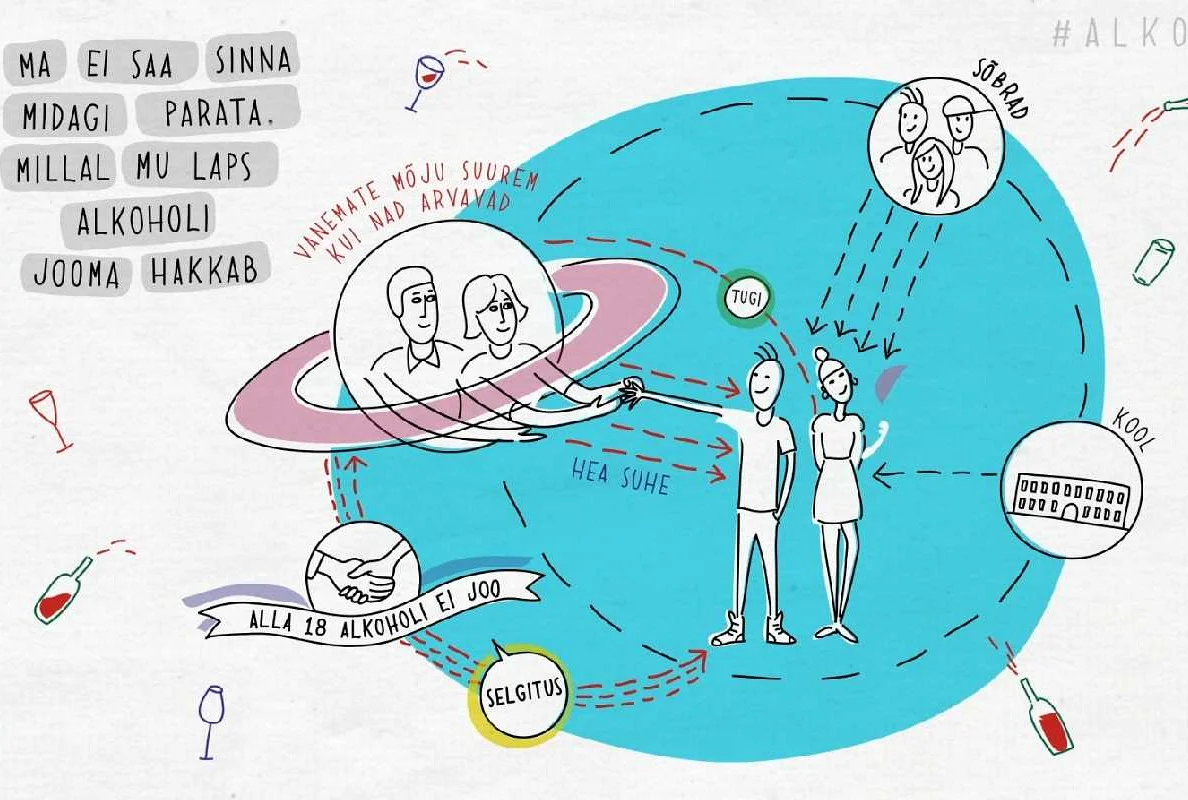 #ALKO
MA EI SAA SINNA
MIDAGI PARATA.
MILLAL MU LAPS
ALKOHOLI
JOOMA HAKKAB
SÕBRAD
VANEMATE MÕJU SUUREM
KUI NAD ARVAVAD
TUGI
KOOL
HEA SUHE
ALLA 18 ALKOHOLI EI JOO
SELGITUS